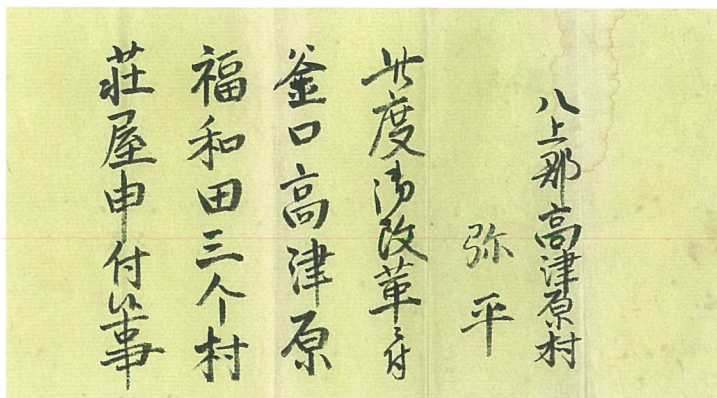 八上郡高津原村
弥平
此度御改革ニ付
釜口高津原
福和田三个村
荘屋申付候事